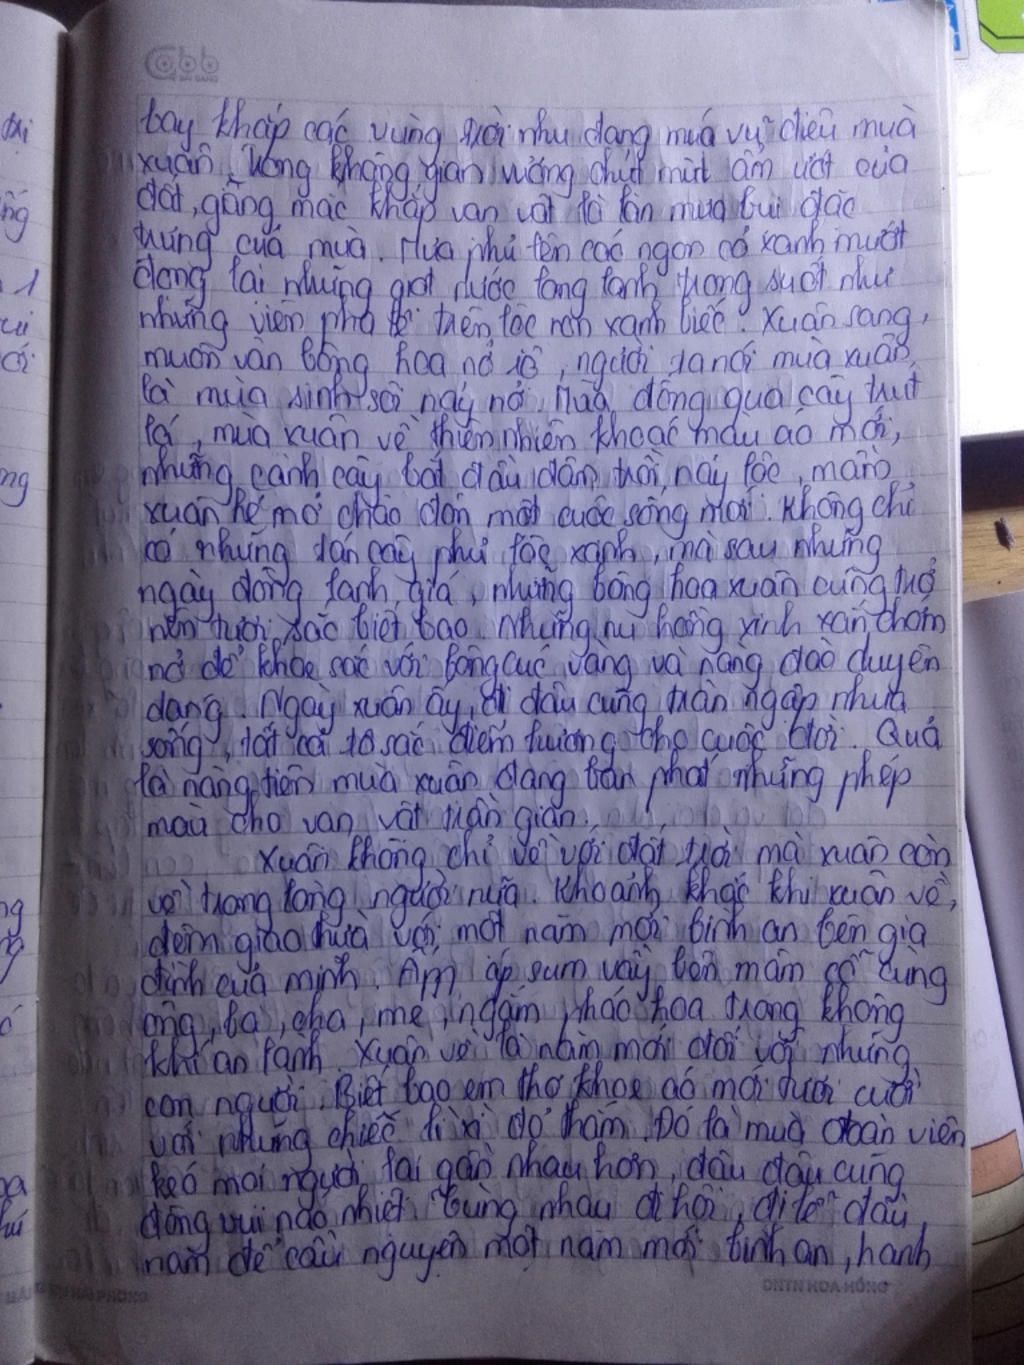 bay khắp các vùng trời như đang múa vũ điệu mùa
xuân. Trong không gian vương chút mùi ẩm ướt của
đất, giăng mắc khắp vạn vật là làn mưa bụi đặc
trưng của mùa. Mưa phủ lên các ngọn cỏ xanh mướt
đọng lại những giọt nước long lanh, trong suốt như
những viên pha lê trên lộc non xanh biếc. Xuân sang,
muôn vàn bông hoa nở rộ, người ta nói mùa xuân
là mùa sinh sôi nảy nở. Mùa đông qua cây trút
lá, mùa xuân về thiên nhiên khoác màu áo mới,
những cành cây bắt đầu đâm trồi, nảy lộc, mầm
xuân hé mở chào đón một cuộc sống mới. Không chỉ
có những tán cây phủ lộc xanh, mà sau những
ngày đông lạnh giá, những bông hoa xuân cũng trở
nên tươi sắc biết bao. Những nụ hồng xinh xắn chớm
nở để khoe sắc với bông cúc vàng và nàng đào duyên
dáng. Ngày xuân ấy, đi đâu cũng tràn ngập nhựa
sống, tất cả tô sắc điểm hương cho cuộc đời. Quả
là nàng tiên mùa xuân đang ban phát những phép
màu cho vạn vật trần gian.
Xuân không chỉ về với đất trời mà xuân còn
về trong lòng người nữa. Khoảnh khắc khi xuân về,
đêm giao thừa với một năm mới bình an bên gia
đình của mình. Ấm áp sum vầy bên mâm cỗ cùng
ông, bà, cha, mẹ, ngắm pháo hoa trong không
khí an lành. Xuân về là năm mới đối với những
con người. Biết bao em thơ khoe áo mới tươi cười
với những chiếc lì xì đỏ thắm. Đó là mùa đoàn viên
kéo mọi người lại gần nhau hơn, đâu đâu cũng
đông vui náo nhiệt. Cùng nhau đi hội, đi lễ đầu
năm để cầu nguyện một năm mới bình an, hạnh
DNTN HOA HỒNG